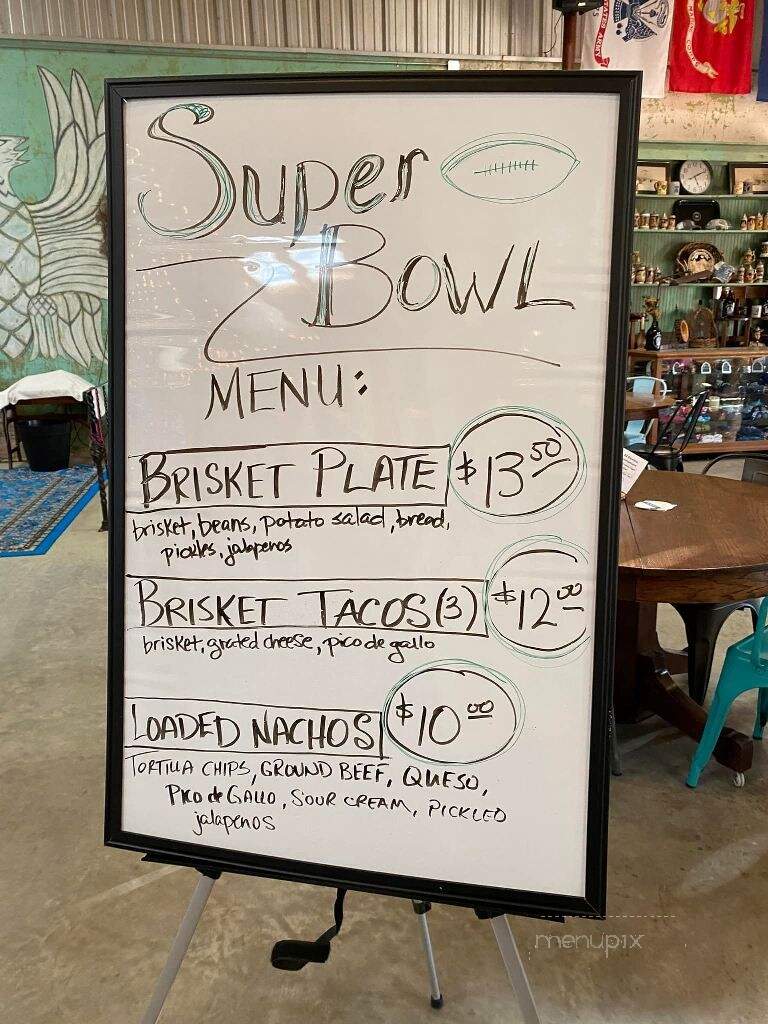 Super
Bowl
MENU:
BRISKET PLATE $13.50
brisket, beans, potato salad, bread,
pickles, jalapenos
BRISKET TACOS (3) $12.00
brisket, grated cheese, pico de gallo
LOADED NACHOS $10.00
TORTILLA CHIPS, GROUND BEEF, QUESO,
PICO de GALLO, SOUR CREAM, PICKLED
jalapenos
menupix